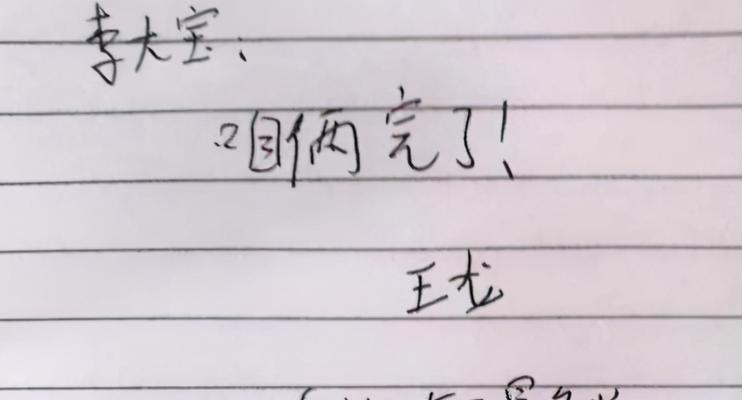 李大宝：
咱俩完了！
王龙